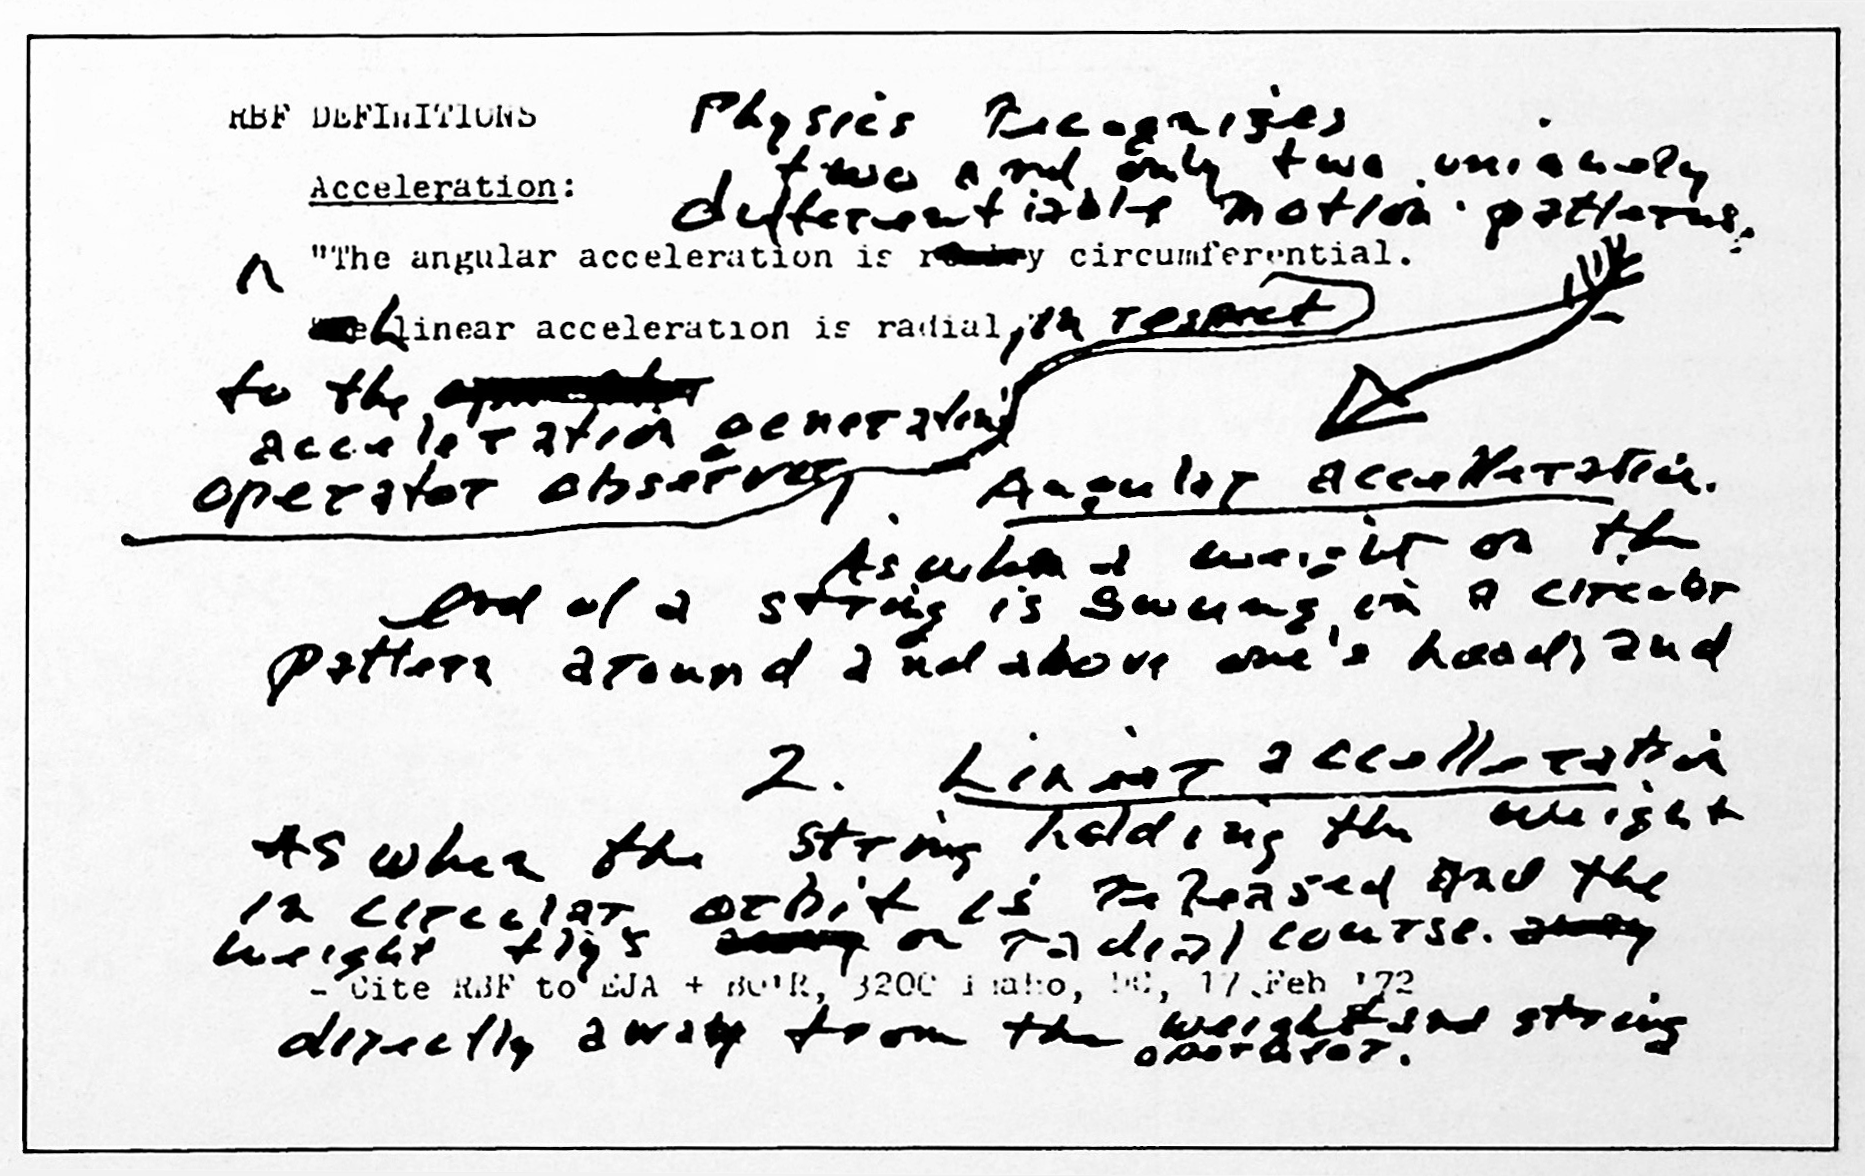 RBF DEFINITIONS
Physics Recognizes
two and only two uniquely
differentiable motion patterns.
Acceleration:
"The angular acceleration is circumferential.
linear acceleration is radial, in respect
to the
acceleration generating
operator observer,
Angular Accelleration.
As when a weight on the
end of a string is swung in a circular
pattern around and above one's head; and
2. Linear accelleration
As when the string holding the weight
in circular orbit is released and the
weight fly's on radial course. away
- Cite RBF to EJA + BO'R, 3200 Idaho, DC, 17 Feb '72
directly away from the weight and string
operator.